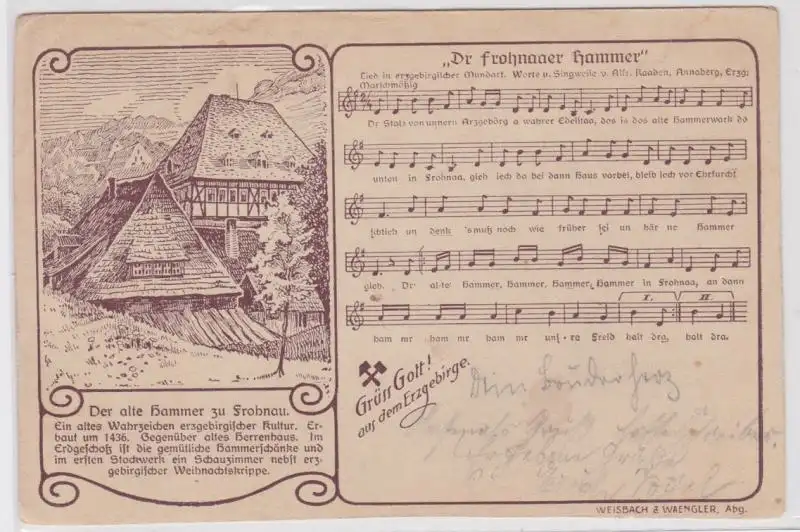 „Dr Frohnaaer Hammer"
Lied in erzgebirgischer Mundart. Worte u. Singweise v. Alfr. Kaaden, Annaberg, Erzg:
Marschmäßig
Dr Stolz von unnern Arzgebörg a wahrer Edelstaa, dos is dos alte Hammerwark do
unten in Frohnaa, gieh iech da bei dann Haus vorbei, bleib iech vor Ehrfurcht
schtieh un denk 's muß noch wie früher sei un här ne Hammer
gieh. Dr alte Hammer, Hammer, Hammer, Hammer in Frohnaa, an dann
ham mr ham mr ham mr uns-re Freid halt dra, halt dra.
I. II.
Grüss Gott!
aus dem Erzgebirge.
Der alte Hammer zu Frohnau.
Ein altes Wahrzeichen erzgebirgischer Kultur. Er-
baut um 1436. Gegenüber altes Herrenhaus. Im
Erdgeschoß ist die gemütliche Hammerschänke und
im ersten Stockwerk ein Schauzimmer nebst erz-
gebirgischer Weihnachtskrippe.
Dein Bruderherz
WEISBACH & WAENGLER, Abg.